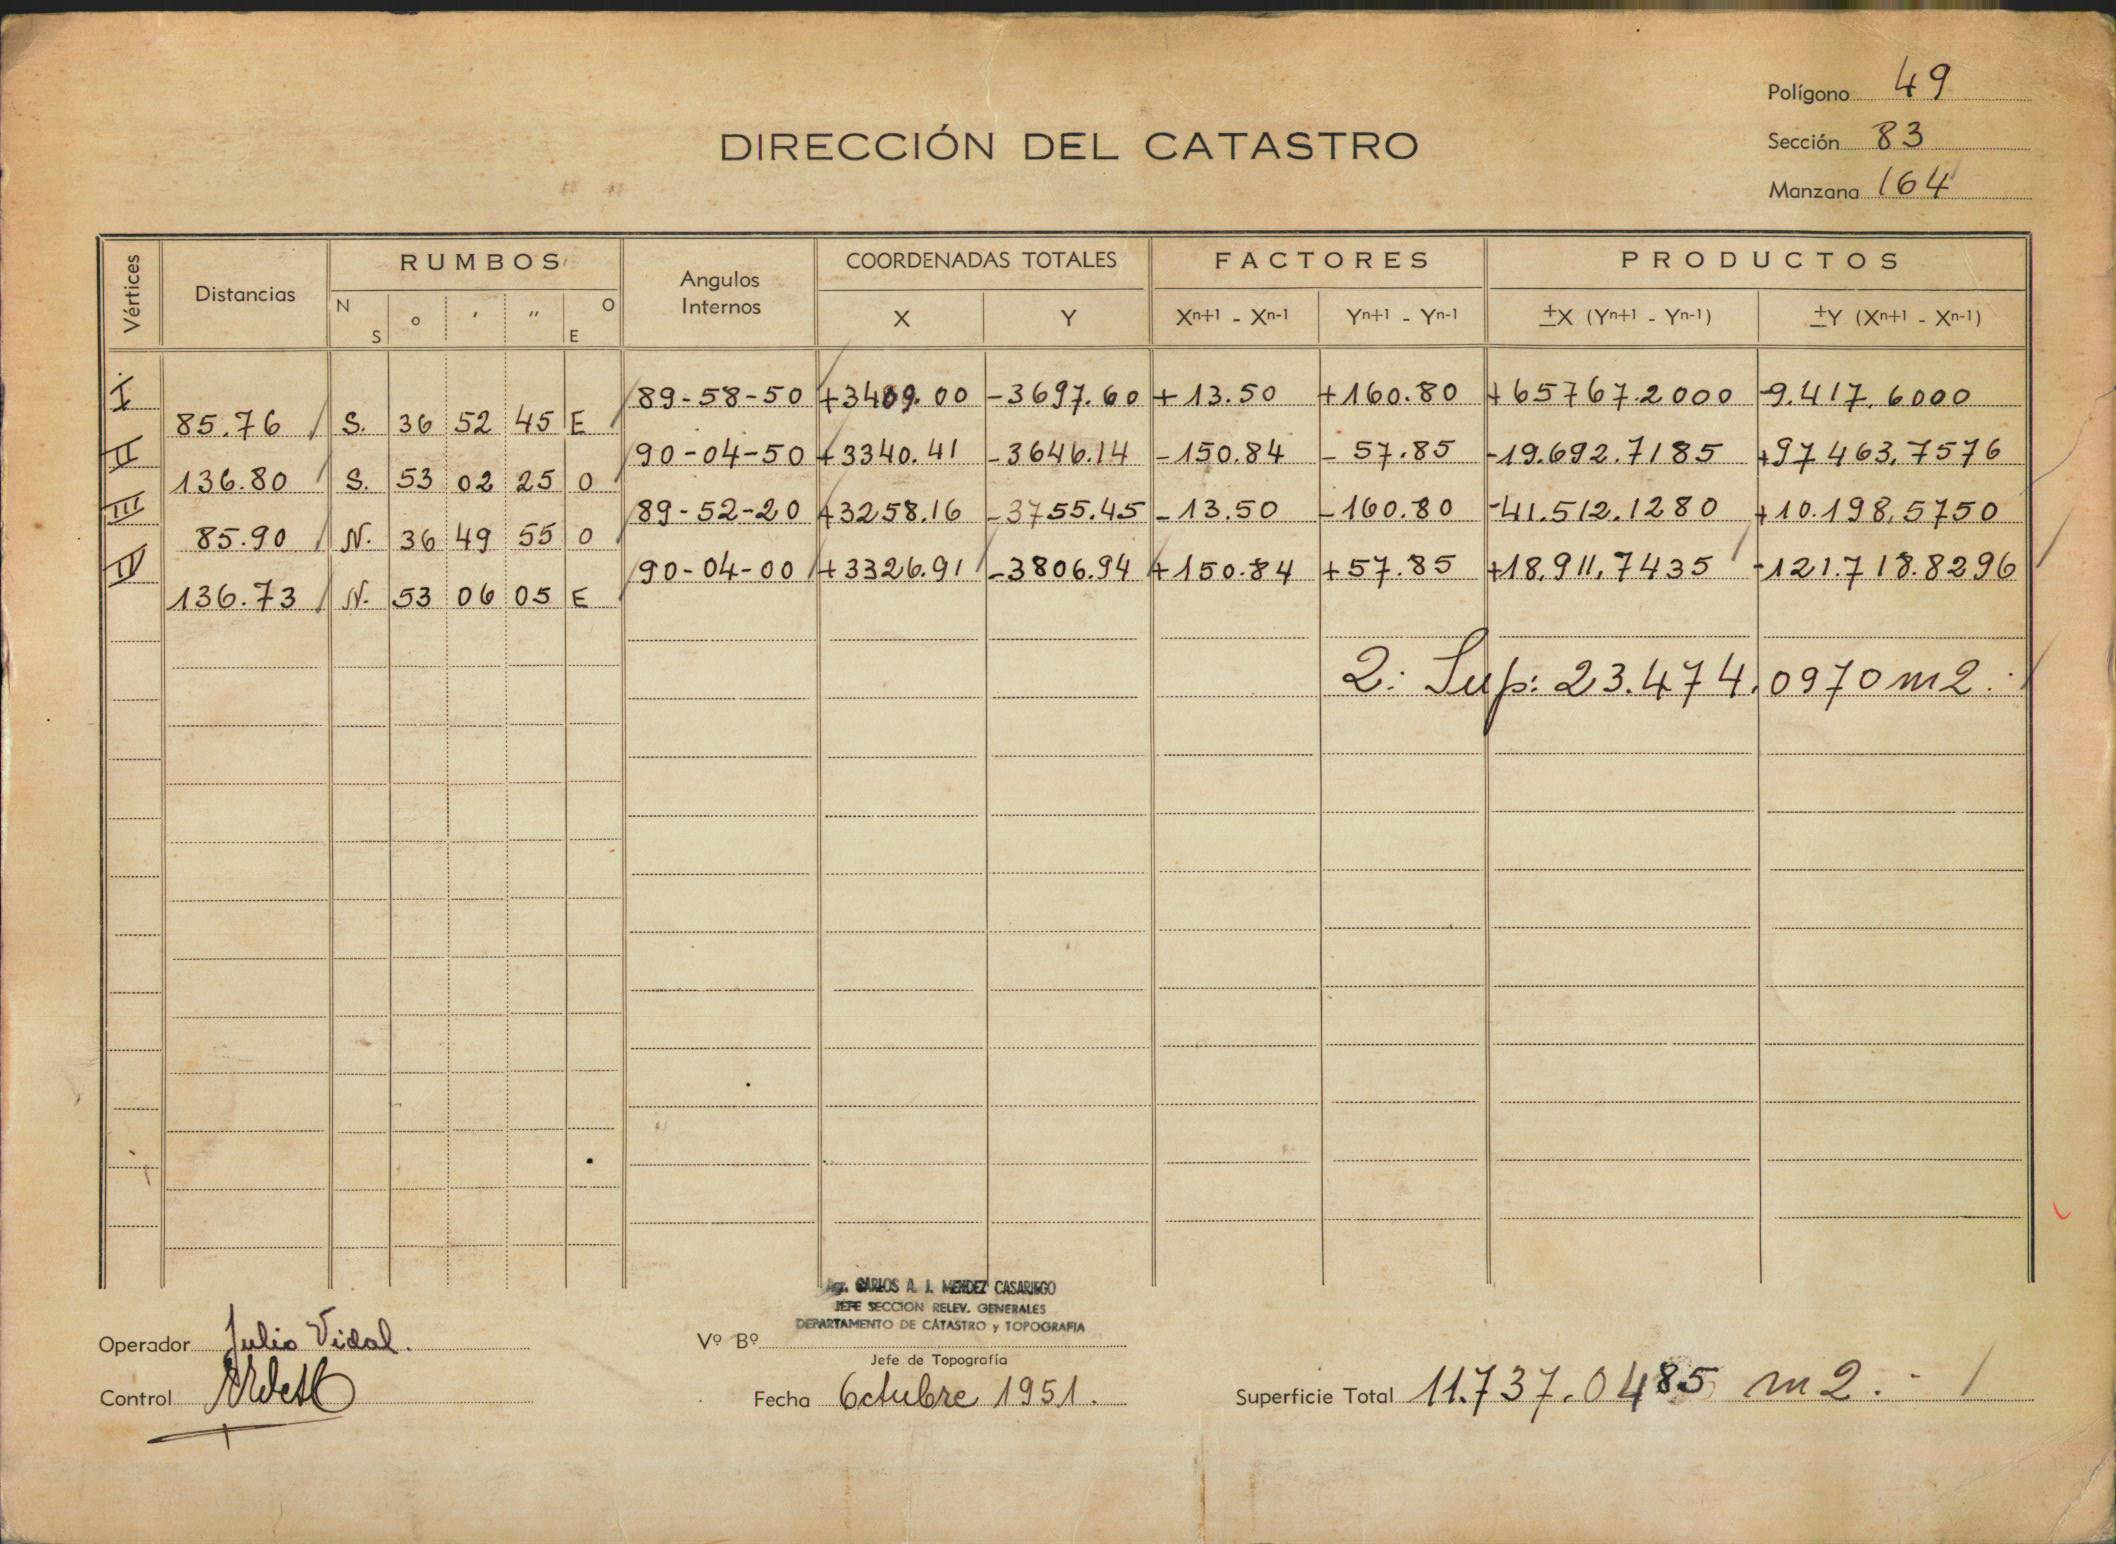 Polígono 49
DIRECCIÓN DEL CATASTRO
Sección 83
Manzana 164
Vértices Distancias RUMBOS Angulos Internos COORDENADAS TOTALES FACTORES PRODUCTOS
N S o ' " O E X Y Xn+1 - Xn-1 Yn+1 - Yn-1 ±X (Yn+1 - Yn-1) ±Y (Xn+1 - Xn-1)
I 89-58-50 +3409.00 -3697.60 +13.50 +160.80 +65767.2000 -9.417.6000
85.76 S. 36 52 45 E
II 90-04-50 +3340.41 -3646.14 -150.84 -57.85 -19.692.7185 +97463.7576
136.80 S. 53 02 25 O
III 89-52-20 +3258.16 -3755.45 -13.50 -160.80 -41.512.1280 +10.198,5750
85.90 N. 36 49 55 O
IV 90-04-00 +3326.91 -3806.94 +150.84 +57.85 +18.911,7435 -121.718.8296
136.73 N. 53 06 05 E
2: Sup: 23.474.0970 m2.
Ag. CARLOS A. J. MENDEZ CASARIEGO
JEFE SECCION RELEV. GENERALES
DEPARTAMENTO DE CATASTRO y TOPOGRAFIA
Operador Julio Vidal.
Vº Bº
Jefe de Topografía
Control
Fecha Octubre 1951.
Superficie Total 11.737.0485 m2.-